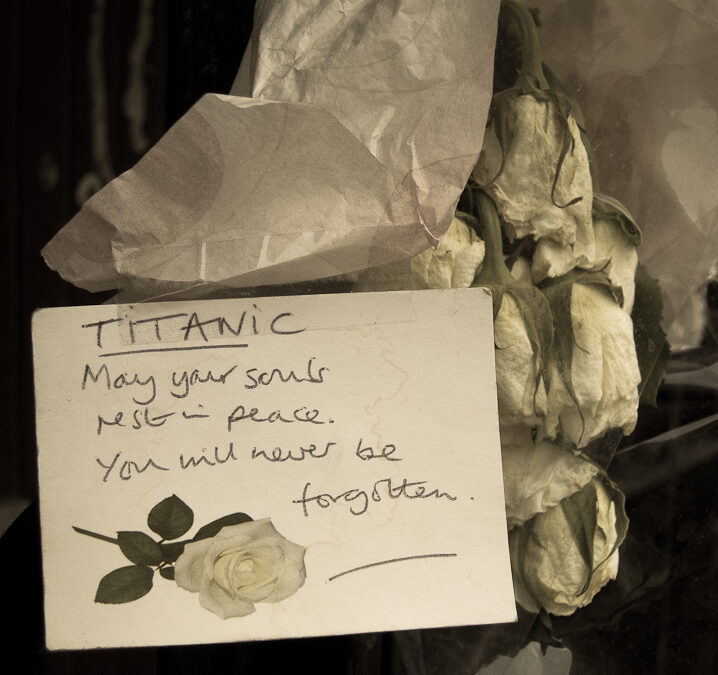 TITANIC
May your souls
rest in peace.
You will never be
forgotten.